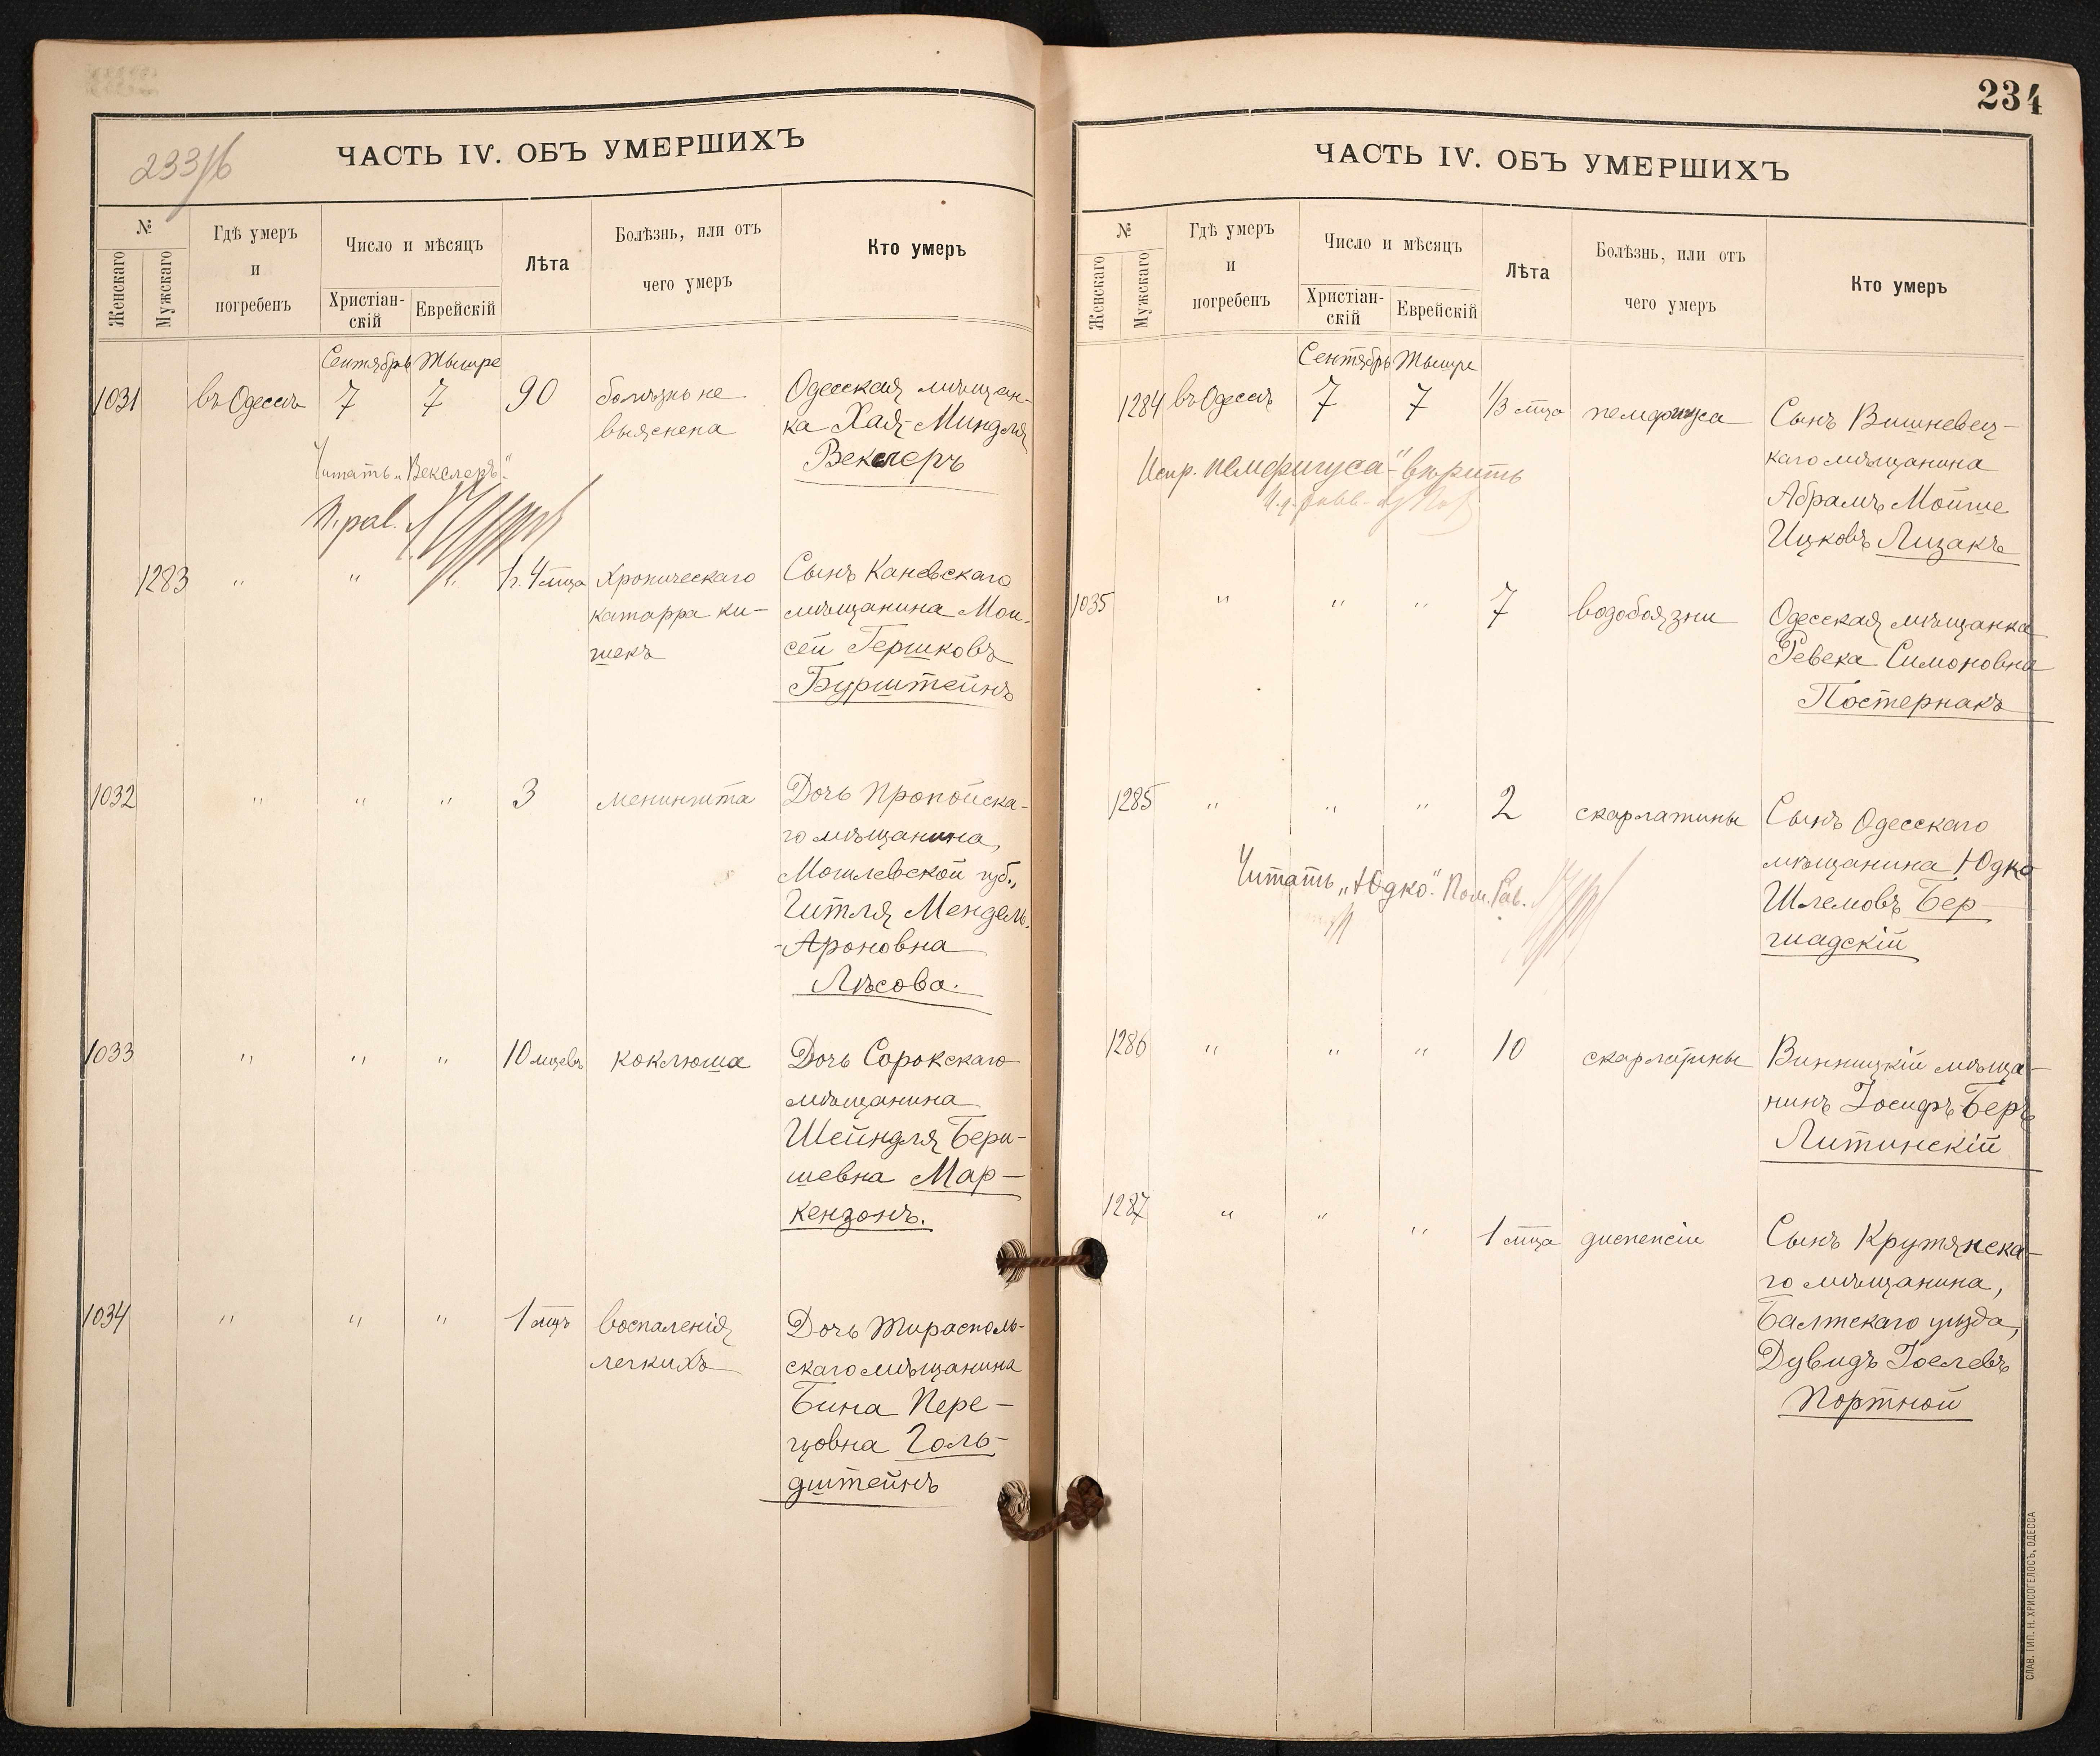 233/б
ЧАСТЬ IV. ОБЪ УМЕРШИХЪ
№
Женскаго
Мужскаго
Гдѣ умеръ
и
погребенъ
Число и мѣсяцъ
Христіан-
скій
Еврейскій
Лѣта
Болѣзнь, или отъ
чего умеръ
Кто умеръ
Сентябрь Тышре
1031 въ Одессѣ 7 7 90 болѣзнь не Одесская мѣщан-
выяснена ка Хая-Миндля
Векслеръ
Читать „Векслеръ“.
П. рав.
1283 " " " 1 г. 4 мца Хроническаго Сынъ Каневскаго
катарра ки- мѣщанина Мои-
шекъ сей Гершковъ
Бурштейнъ
1032 " " " 3 менингита Дочь Пропойска-
го мѣщанина,
Могилевской губ.,
Гитля Мендель-
-Ароновна
Лѣсова.
1033 " " " 10 мцевъ коклюша Дочь Сорокскаго
мѣщанина
Шейндля Бери-
шевна Мар-
кензонъ.
1034 " " " 1 мцъ воспаленія Дочь Тирасполь-
легкихъ скаго мѣщанина
Бина Пере-
цовна Голь-
дштейнъ
234
ЧАСТЬ IV. ОБЪ УМЕРШИХЪ
№
Женскаго
Мужскаго
Гдѣ умеръ
и
погребенъ
Число и мѣсяцъ
Христіан-
скій
Еврейскій
Лѣта
Болѣзнь, или отъ
чего умеръ
Кто умеръ
Сентябрь Тышре
1284 въ Одессѣ 7 7 1/3 мца пемфигуса Сынъ Вишневец-
каго мѣщанина
Абрамъ Мойше
Ицковъ Лизакъ
Испр. „пемфигуса“ вѣрить
1035 " " " 7 водобоязни Одесская мѣщанка
Ревека Симоновна
Постернакъ
1285 " " " 2 скарлатины Сынъ Одесскаго
мѣщанина Юдко
Шлемовъ Бер-
шадскій
Читать „Юдко“. Пом. Рав.
1286 " " " 10 скарлатины Винницкій мѣща-
нинъ Іосифъ-Беръ
Литинскій
1287 " " " 1 мца диспепсіи Сынъ Крутянска-
го мѣщанина,
Балтскаго уѣзда,
Дувидъ Іоелевъ
Портной
СЛАВ. ТИП. Н. ХРИСОГЕЛОСЪ, ОДЕССА